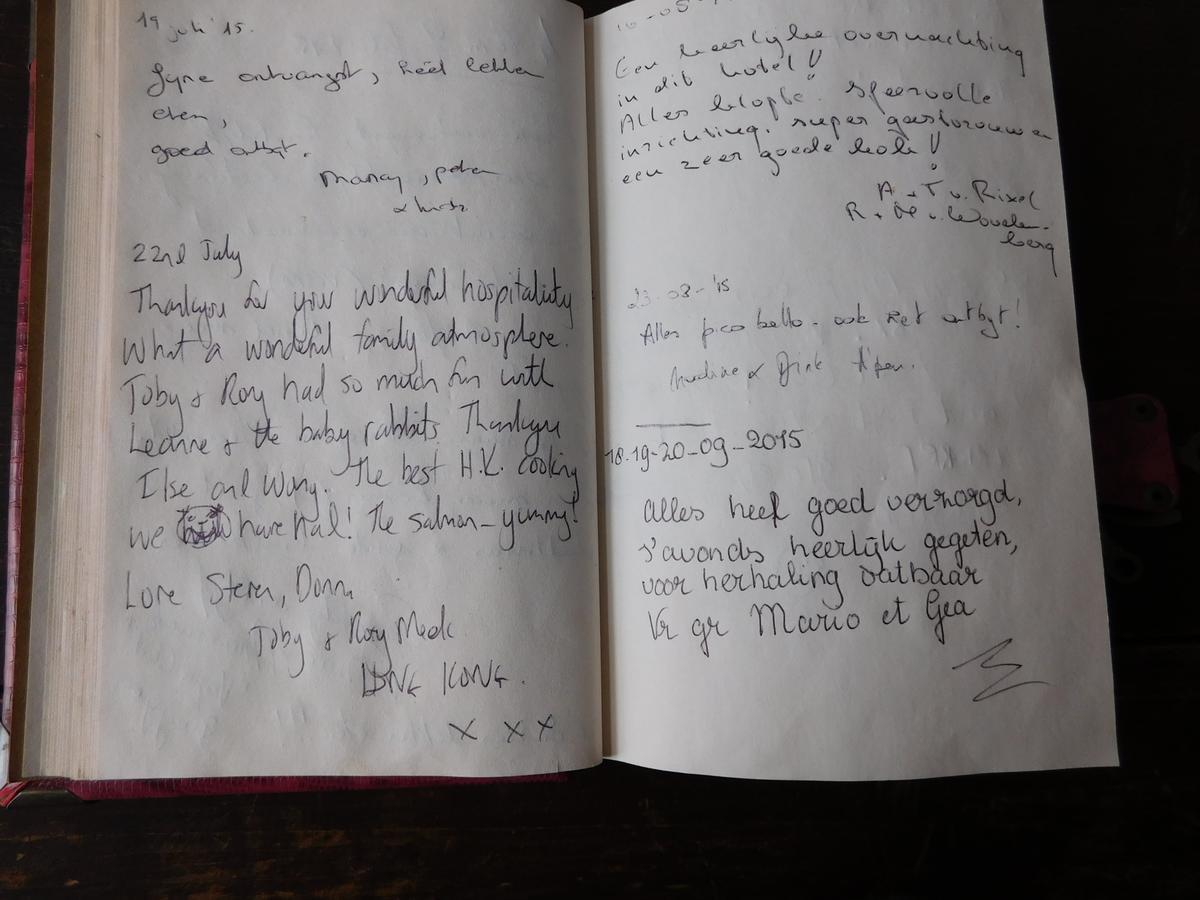 19 juli '15.
fijne ontvangst, heel lekker
eten,
goed ontbijt.
Mancy, peter
22nd July
Thankyou for your wonderful hospitaliuty
What a wonderful family atmosphere.
Toby & Rory had so much fun with
Leanne & the baby rabbits. Thankyou
Ilse and Wany. The best H.K. cooking
we have had! The salmon - yummy!
Love Steven, Donna
Toby & Rory Meek
HONG KONG.
x x x
Een heerlijke overnachting
in dit hotel!!
Alles klopte. sfeervolle
inrichting. super gastvrouw en
een zeer goede kok!!
A + T v. Rixel
R + M v. Wouden-
berg
23-08-'15
Alles pico bello - ook het ontbyt!
18-19-20-09-2015
alles heel goed verzorgd,
s'avonds heerlijk gegeten,
voor herhaling vatbaar
Vr gr Mario et Gea